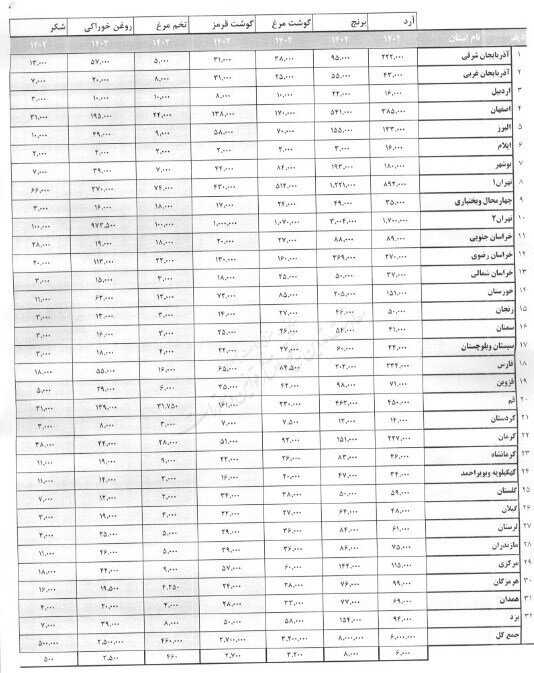 آرد برنج گوشت مرغ گوشت قرمز تخم مرغ روغن خوراکی شکر
ردیف نام استان ۱۴۰۲ ۱۴۰۲ ۱۴۰۲ ۱۴۰۲ ۱۴۰۲ ۱۴۰۲ ۱۴۰۲
۱ آذربایجان شرقی ۲۲۲,۰۰۰ ۹۵,۰۰۰ ۳۸,۰۰۰ ۳۱,۰۰۰ ۵,۰۰۰ ۵۷,۰۰۰ ۱۳,۰۰۰
۲ آذربایجان غربی ۴۳,۰۰۰ ۵۵,۰۰۰ ۲۵,۰۰۰ ۳۱,۰۰۰ ۸,۰۰۰ ۲۰,۰۰۰ ۷,۰۰۰
۳ اردبیل ۱۶,۰۰۰ ۲۲,۰۰۰ ۱۰,۰۰۰ ۸,۰۰۰ ۱۰,۰۰۰ ۱۰,۰۰۰ ۳,۰۰۰
۴ اصفهان ۳۸۵,۰۰۰ ۵۴۱,۰۰۰ ۱۷۰,۰۰۰ ۱۳۸,۰۰۰ ۲۴,۰۰۰ ۱۹۵,۰۰۰ ۳۱,۰۰۰
۵ البرز ۱۳۳,۰۰۰ ۱۵۵,۰۰۰ ۷۰,۰۰۰ ۵۸,۰۰۰ ۹,۰۰۰ ۴۹,۰۰۰ ۱۰,۰۰۰
۶ ایلام ۱۶,۰۰۰ ۳,۰۰۰ ۲,۰۰۰ ۲,۰۰۰ ۲,۰۰۰ ۲,۰۰۰ ۲,۰۰۰
۷ بوشهر ۱۸۰,۰۰۰ ۱۹۳,۰۰۰ ۸۴,۰۰۰ ۴۴,۰۰۰ ۷,۰۰۰ ۳۹,۰۰۰ ۷,۰۰۰
۸ تهران۱ ۸۹۲,۰۰۰ ۱,۲۲۱,۰۰۰ ۵۱۲,۰۰۰ ۴۳۰,۰۰۰ ۷۴,۰۰۰ ۳۷۰,۰۰۰ ۶۶,۰۰۰
۹ چهارمحال وبختیاری ۳۵,۰۰۰ ۴۹,۰۰۰ ۲۴,۰۰۰ ۱۷,۰۰۰ ۱۸,۰۰۰ ۱۶,۰۰۰ ۳,۰۰۰
۱۰ تهران۲ ۱,۷۰۰,۰۰۰ ۳,۰۰۴,۰۰۰ ۱,۰۷۰,۰۰۰ ۱,۰۰۰,۰۰۰ ۱۰۰,۰۰۰ ۹۷۳,۵۰۰ ۱۰۰,۰۰۰
۱۱ خراسان جنوبی ۸۹,۰۰۰ ۸۸,۰۰۰ ۲۷,۰۰۰ ۲۰,۰۰۰ ۱۸,۰۰۰ ۱۹,۰۰۰ ۲۸,۰۰۰
۱۲ خراسان رضوی ۲۷۰,۰۰۰ ۳۶۹,۰۰۰ ۱۶۰,۰۰۰ ۱۳۰,۰۰۰ ۲۲,۰۰۰ ۱۱۳,۰۰۰ ۲۰,۰۰۰
۱۳ خراسان شمالی ۳۷,۰۰۰ ۵۰,۰۰۰ ۲۵,۰۰۰ ۱۸,۰۰۰ ۳,۰۰۰ ۱۵,۰۰۰ ۳,۰۰۰
۱۴ خوزستان ۱۵۱,۰۰۰ ۲۰۵,۰۰۰ ۸۵,۰۰۰ ۷۲,۰۰۰ ۱۲,۰۰۰ ۶۲,۰۰۰ ۱۱,۰۰۰
۱۵ زنجان ۵۰,۰۰۰ ۴۶,۰۰۰ ۲۷,۰۰۰ ۱۴,۰۰۰ ۳,۰۰۰ ۱۳,۰۰۰ ۳,۰۰۰
۱۶ سمنان ۴۱,۰۰۰ ۵۴,۰۰۰ ۲۶,۰۰۰ ۲۵,۰۰۰ ۳,۰۰۰ ۱۶,۰۰۰ ۳,۰۰۰
۱۷ سیستان وبلوچستان ۴۴,۰۰۰ ۶۰,۰۰۰ ۲۷,۰۰۰ ۲۲,۰۰۰ ۴,۰۰۰ ۱۸,۰۰۰ ۳,۰۰۰
۱۸ فارس ۲۳۴,۰۰۰ ۲۰۲,۰۰۰ ۸۴,۵۰۰ ۶۵,۰۰۰ ۱۶,۰۰۰ ۵۵,۰۰۰ ۱۸,۰۰۰
۱۹ قزوین ۷۱,۰۰۰ ۹۸,۰۰۰ ۴۲,۰۰۰ ۳۵,۰۰۰ ۶,۰۰۰ ۲۹,۰۰۰ ۵,۰۰۰
۲۰ قم ۴۵۰,۰۰۰ ۴۶۲,۰۰۰ ۲۳۰,۰۰۰ ۱۶۱,۰۰۰ ۳۱,۷۵۰ ۱۳۹,۰۰۰ ۳۱,۰۰۰
۲۱ کردستان ۱۴,۰۰۰ ۱۲,۰۰۰ ۷,۵۰۰ ۷,۰۰۰ ۳,۰۰۰ ۸,۰۰۰ ۳,۰۰۰
۲۲ کرمان ۲۲۷,۰۰۰ ۱۵۱,۰۰۰ ۹۲,۰۰۰ ۵۱,۰۰۰ ۲۸,۰۰۰ ۴۴,۰۰۰ ۳۸,۰۰۰
۲۳ کرمانشاه ۴۶,۰۰۰ ۸۳,۰۰۰ ۲۶,۰۰۰ ۲۲,۰۰۰ ۹,۰۰۰ ۱۹,۰۰۰ ۱۱,۰۰۰
۲۴ کهگیلویه وبویراحمد ۳۴,۰۰۰ ۴۷,۰۰۰ ۲۰,۰۰۰ ۱۶,۰۰۰ ۳,۰۰۰ ۱۴,۰۰۰ ۱۱,۰۰۰
۲۵ گلستان ۵۹,۰۰۰ ۵۰,۰۰۰ ۳۸,۰۰۰ ۳۴,۰۰۰ ۲,۰۰۰ ۱۲,۰۰۰ ۷,۰۰۰
۲۶ گیلان ۴۸,۰۰۰ ۶۴,۰۰۰ ۲۷,۰۰۰ ۲۲,۰۰۰ ۴,۰۰۰ ۱۹,۰۰۰ ۳,۰۰۰
۲۷ لرستان ۶۱,۰۰۰ ۸۴,۰۰۰ ۳۶,۰۰۰ ۲۹,۰۰۰ ۵,۰۰۰ ۲۵,۰۰۰ ۴,۰۰۰
۲۸ مازندران ۷۵,۰۰۰ ۸۶,۰۰۰ ۳۶,۰۰۰ ۳۹,۰۰۰ ۵,۰۰۰ ۲۶,۰۰۰ ۱۱,۰۰۰
۲۹ مرکزی ۱۱۵,۰۰۰ ۱۴۴,۰۰۰ ۶۰,۰۰۰ ۵۷,۰۰۰ ۹,۰۰۰ ۴۴,۰۰۰ ۱۸,۰۰۰
۳۰ هرمزگان ۹۹,۰۰۰ ۷۶,۰۰۰ ۲۸,۰۰۰ ۲۴,۰۰۰ ۴,۲۵۰ ۱۹,۵۰۰ ۱۶,۰۰۰
۳۱ همدان ۶۹,۰۰۰ ۷۷,۰۰۰ ۳۳,۰۰۰ ۲۸,۰۰۰ ۴,۰۰۰ ۲۰,۰۰۰ ۴,۰۰۰
۳۲ یزد ۹۴,۰۰۰ ۱۵۴,۰۰۰ ۵۸,۰۰۰ ۵۰,۰۰۰ ۸,۰۰۰ ۳۹,۰۰۰ ۷,۰۰۰
جمع کل ۶,۰۰۰,۰۰۰ ۸,۰۰۰,۰۰۰ ۳,۲۰۰,۰۰۰ ۲,۷۰۰,۰۰۰ ۴۶۰,۰۰۰ ۲,۵۰۰,۰۰۰ ۵۰۰,۰۰۰
۶,۰۰۰ ۸,۰۰۰ ۳,۲۰۰ ۲,۷۰۰ ۴۶۰ ۲,۵۰۰ ۵۰۰